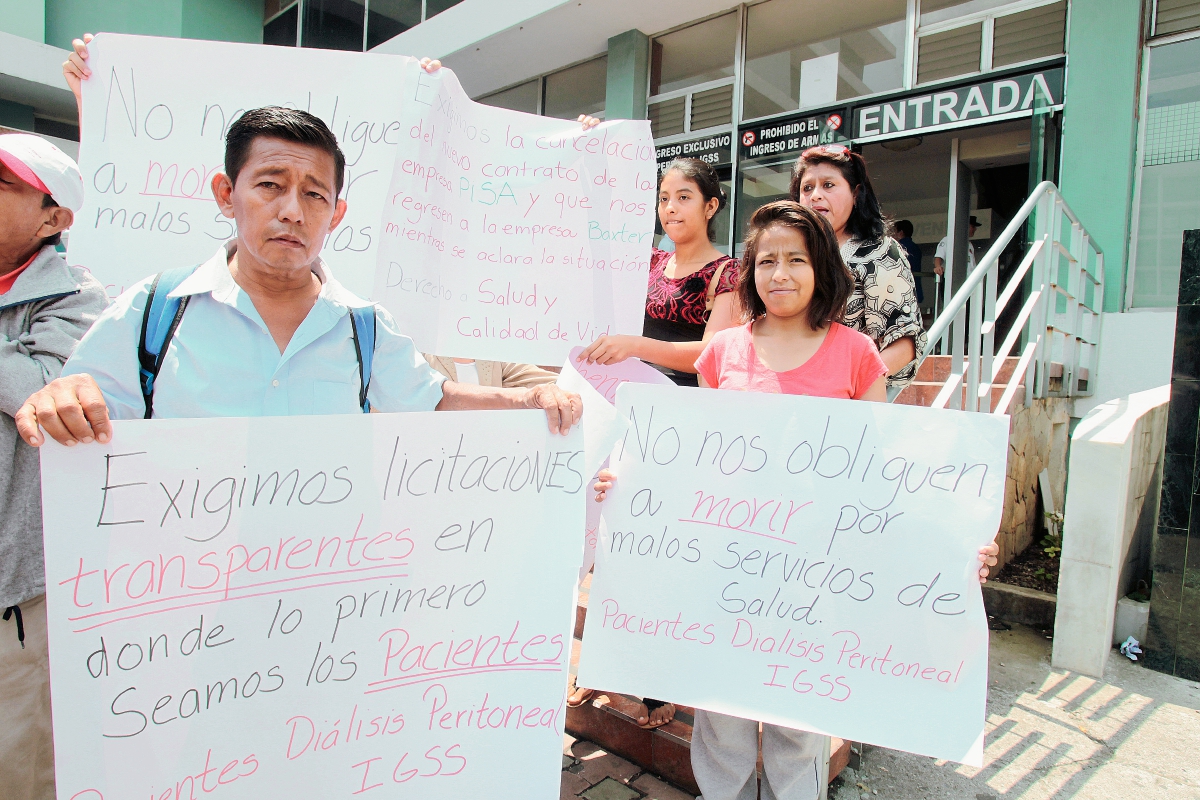 No nos obligue
a morir por
malos servicios
Exigimos la cancelación
del nuevo contrato de la
empresa PISA y que nos
regresen a la empresa Baxter
mientras se aclara la situación
Derecho a Salud y
Calidad de Vida
INGRESO EXCLUSIVO
IGSS
PROHIBIDO EL
INGRESO DE ARMAS
ENTRADA
Exigimos licitaciONES
transparentes en
donde lo primero
Seamos los Pacientes
Pacientes Diálisis Peritoneal
IGSS
No nos obliguen
a morir por
malos servicios de
Salud.
Pacientes Dialisis Peritoneal
IGSS